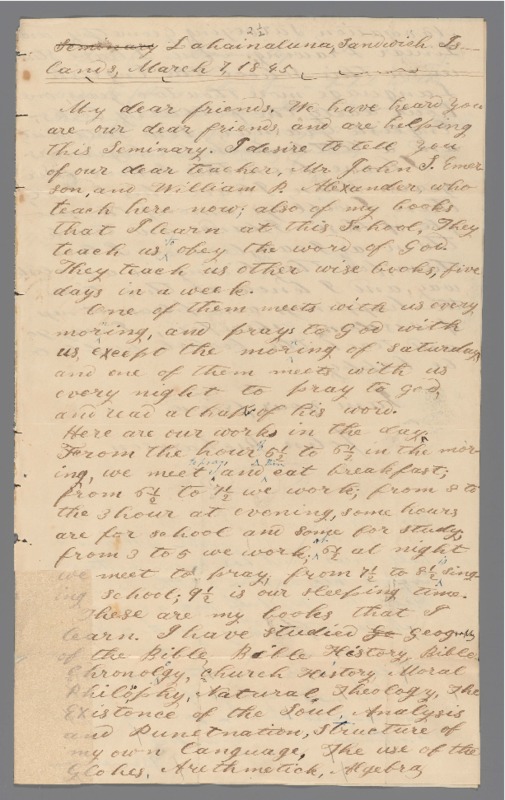 2 1/2
Seminary Lahainaluna, Sandwich Is-
lands, March 7, 1845.
My dear friends. We have heard you
are our dear friends, and are helping
this Seminary. I desire to tell you
of our dear teacher, Mr. John S. Emer
son, and William P. Alexander who
teach here now; also of my books
that I learn at this School, They
teach us to obey the word of God.
They teach us other wise books, five
days in a week.
One of them meets with us every
moring, and prays to God with
us, except the moring of Saturday,
and one of them meets with us
every night to pray to God,
and read a chap. of his word.
Here are our works in the day.
From the hour 5 1/2 to 6 1/2 in the mor-
ing, we meet to pray, and eat breakfast;
from 6 1/2 to 7 1/2 we work; from 8 to
the 3 hour at evening, some hours
are for school and some for study,
from 3 to 5 we work, 6 1/2 at night
we meet to pray, from 7 1/2 to 8 1/2 sing-
ing school; 9 1/2 is our sleeping time.
These are my books that I
learn. I have studied Ge Geography
of the Bible, Bible History, Bible
Chronolgy, Church History Moral
Philophy, Natural Theology, The
Existence of the Soul, Analysis
and Punctnation, Structure of
my own Language, The use of the
Globes, Arethmetick, Algebra,